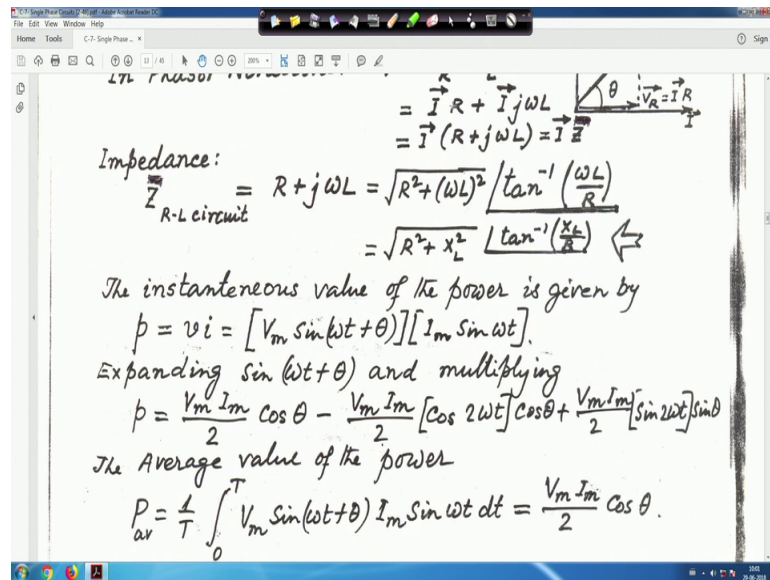 C-7- Single Phase Circuits [2-49].pdf - Adobe Acrobat Reader DC
File Edit View Window Help
Home Tools C-7- Single Phase ... × Sign
33 / 45 200%
In Phasor
= I⃗ R + I⃗ jωL
= I⃗ (R + jωL) = I⃗ Z̄
θ V⃗_R = I⃗ R
I⃗
Impedance:
Z̄ R-L circuit = R + jωL = √(R² + (ωL)²) ∠tan⁻¹(ωL/R)
= √(R² + X_L²) ∠tan⁻¹(X_L/R) ⇐
The instanteneous value of the power is given by
p = vi = [V_m Sin(ωt + θ)][I_m Sin ωt].
Expanding Sin (ωt + θ) and multiplying
p = V_m I_m/2 Cos θ − V_m I_m/2 [Cos 2ωt] Cos θ + V_m I_m/2 [Sin 2ωt] Sin θ
The Average value of the power
P_av = 1/T ∫₀ᵀ V_m Sin(ωt + θ) I_m Sin ωt dt = V_m I_m/2 Cos θ.
10:01